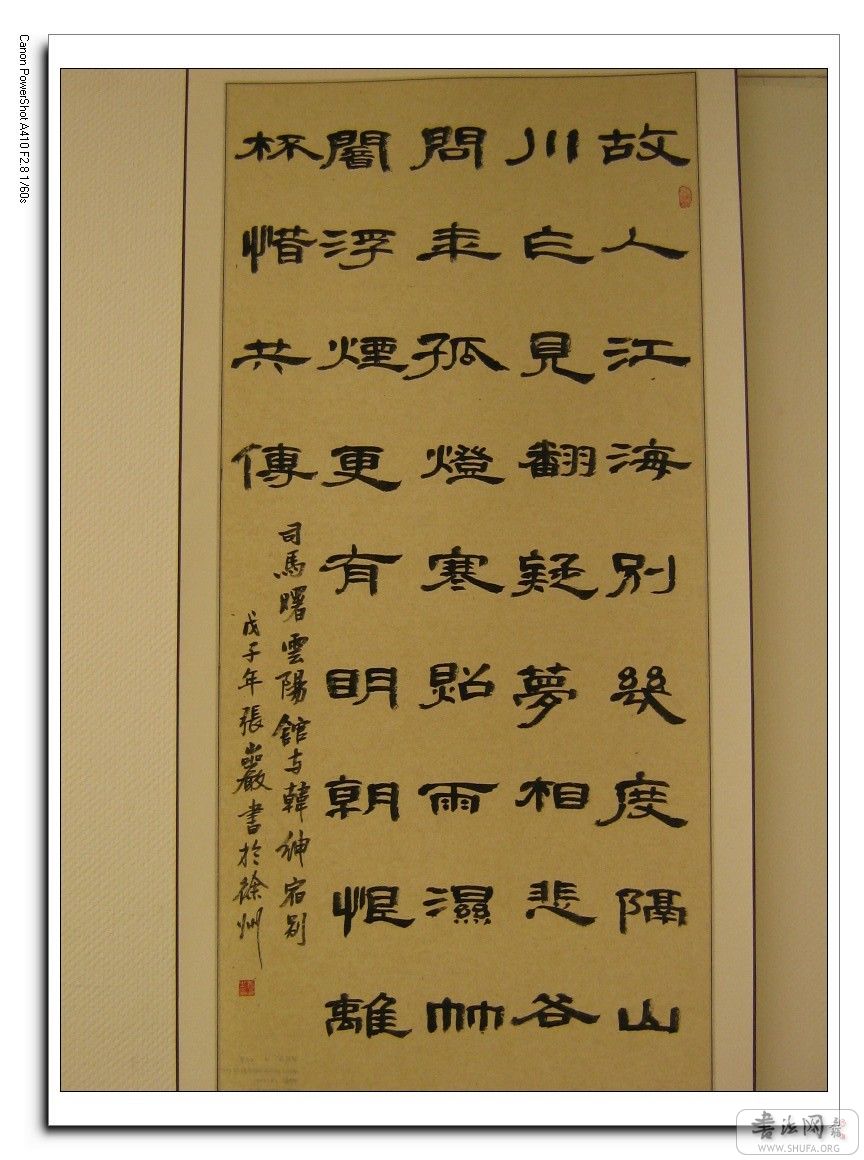 故人江海别幾度隔山
川乍見翻疑夢相悲各
問年孤燈寒照雨濕竹
闇浮煙更有明朝恨離
杯惜共傳
司馬曙雲陽館与韓紳宿别
戊子年張巖書於徐州
Canon PowerShot A410 F2.8 1/60s
书法网
WWW.SHUFA.ORG